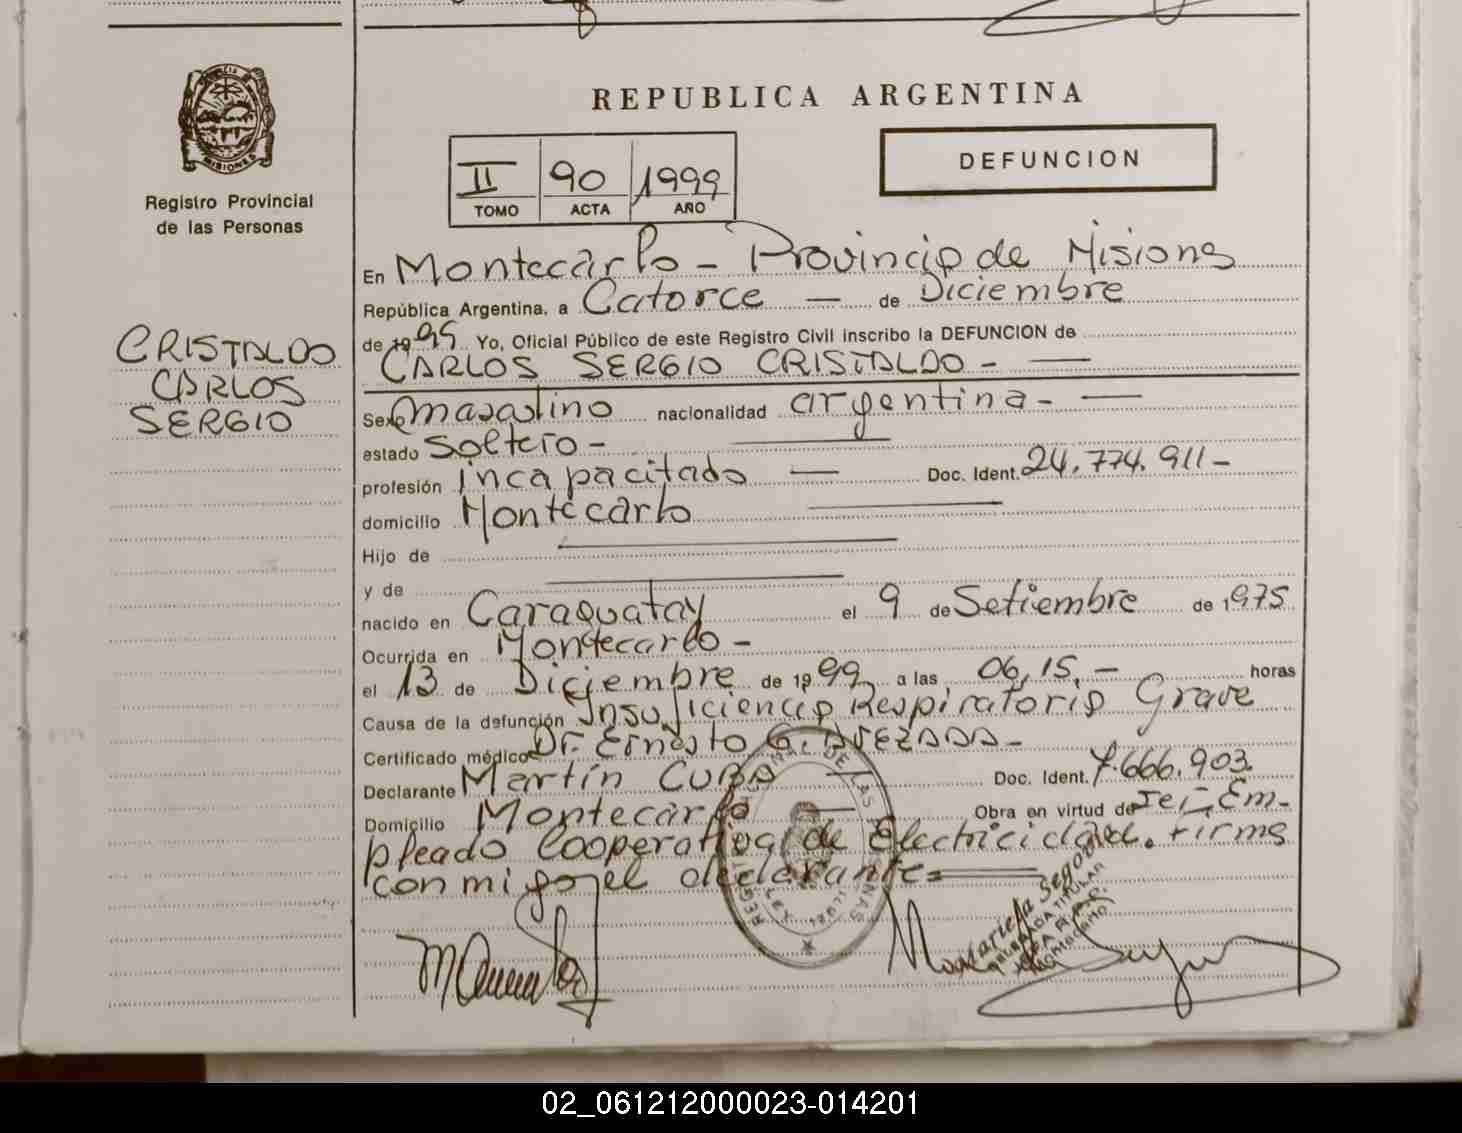 REPUBLICA ARGENTINA
MISIONES
Registro Provincial
de las Personas
II 90 1999
TOMO ACTA AÑO
DEFUNCION
CRISTALDO
CARLOS
SERGIO
En Montecarlo - Provincia de Misiones
República Argentina, a Catorce — de Diciembre
de 1995 Yo, Oficial Público de este Registro Civil inscribo la DEFUNCION de
CARLOS SERGIO CRISTALDO -
Sexo masculino nacionalidad argentina -
estado soltero -
profesión incapacitado — Doc. Ident. 24.774.911-
domicilio Montecarlo
Hijo de
y de
nacido en Caraguatay el 9 de Setiembre de 1975
Ocurrida en Montecarlo -
el 13 de Diciembre de 1999 a las 06,15,- horas
Causa de la defunción Insuficiencia Respiratoria Grave
Certificado médico Dr. Ernesto G.
Declarante Martín CUBA Doc. Ident. 7.666.903
Domicilio Montecarlo — Obra en virtud de Em-
pleado Cooperativa de Electricidad. Firma
conmigo el declarante=
Mariela Segov
DELEGADA TITULAR
02_061212000023-014201